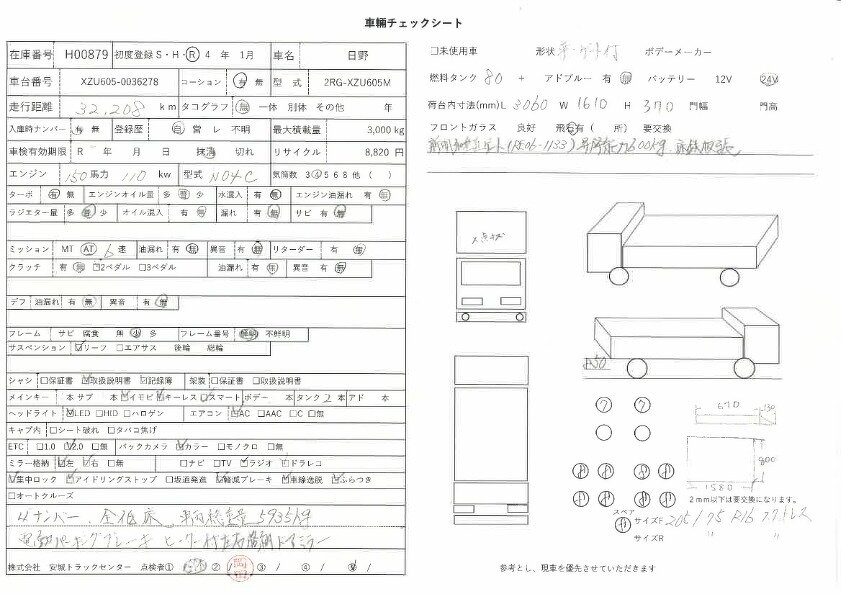 車輛チェックシート
在庫番号 H00879 初度登録 S・H・R 4 年 1月 車名 日野
車台番号 XZU605-0036278 コーション 有 無 型 式 2RG-XZU605M
走行距離 32,208 km タコグラフ 無 一体 別体 その他 年
入庫時ナンバー 有 無 登録歴 自 営 レ 不明 最大積載量 3,000 kg
車検有効期限 R 年 月 日 抹消 切れ リサイクル 8,820 円
エンジン 150 馬力 110 kw 型式 N04C 気筒数 3 4 5 6 8 他 ( )
ターボ 有 無 エンジンオイル量 多 普 少 水混入 有 無 エンジン油漏れ 有 無
ラジエター量 多 普 少 オイル混入 有 無 漏れ 有 無 サビ 有 無
ミッション MT AT 6 速 油漏れ 有 無 異音 有 無 リターダー 有 無
クラッチ 有 無 ☑2ペダル □3ペダル 油漏れ 有 無 異音 有 無
デフ 油漏れ 有 無 異音 有 無
フレーム サビ 腐食 無 少 多 フレーム番号 鮮明 不鮮明
サスペンション ☑リーフ □エアサス 後輪 総輪
シャシ □保証書 ☑取扱説明書 ☑記録簿 架装 □保証書 □取扱説明書
メインキー 本 サブ 本 ☑イモビ ☑キーレス □スマート ボデー 本 タンク 2 本 アド 本
ヘッドライト ☑LED □HID □ハロゲン エアコン ☑AC □AAC □C □無
キャブ内 □シート破れ □タバコ焦げ
ETC □1.0 ☑2.0 □無 バックカメラ ☑カラー □モノクロ □無
ミラー格納 ☑左 ☑右 □無 □ナビ □TV ☑ラジオ □ドラレコ
☑集中ロック ☑アイドリングストップ □坂道発進 ☑軽減ブレーキ ☑車線逸脱 ☑ふらつき
□オートクルーズ
4ナンバー、全低床 車両総重量 5935kg
電動パーキングブレーキ ヒーター付左右電動格納ミラー
株式会社 安城トラックセンター 点検者① ② ③ / ④ / /
□未使用車 形状 平・ゲート付 ボデーメーカー
燃料タンク 80 + アドブルー 有 無 バッテリー 12V 24V
荷台内寸法(mm)L 3060 W 1610 H 370 門幅 門高
フロントガラス 良好 飛石有 ( 所) 要交換
昇降能力600kg
×点さび
50
670
130
800
1580
2mm以下は要交換になります。
スペア
サイズF 205/75 R16 スタッドレス
サイズR 〃 〃
参考とし、現車を優先させていただきます